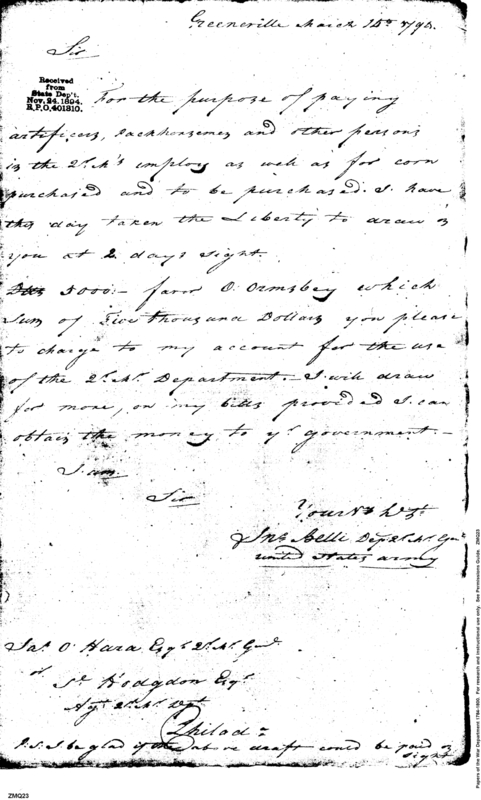 Greeneville March 15th 1794.
Sir
Received
from
State Dep't.
Nov. 24. 1894.
R.P.O. 401310.
For the purpose of paying
artificers, Packhorsemen and other persons
in the 2r Mrs employ as well as for corn
purchased and to be purchased. I have
this day taken the Liberty to draw on
you at 2 days sight.
5000:- favor O. Ormsbey which
Sum of Five thousand Dollars you please
to charge to my account for the use
of the 2r Mr Department. I will draw
for more, on my bills provided I can
obtain the money to yr government -
I am
Sir
Your
Jno Belli Dep 2r Mr Genl
united States army
Jas O Hara Esqr 2r Mr Genl
or
Sl Hodgdon Esqr
Agt 2r Mr Dept
Philada
P.S. I be glad if the above draft could be paid on
sight
ZMQ23
Papers of the War Department 1784-1800. For research and instructional use only. See Permissions Guide. ZMQ23